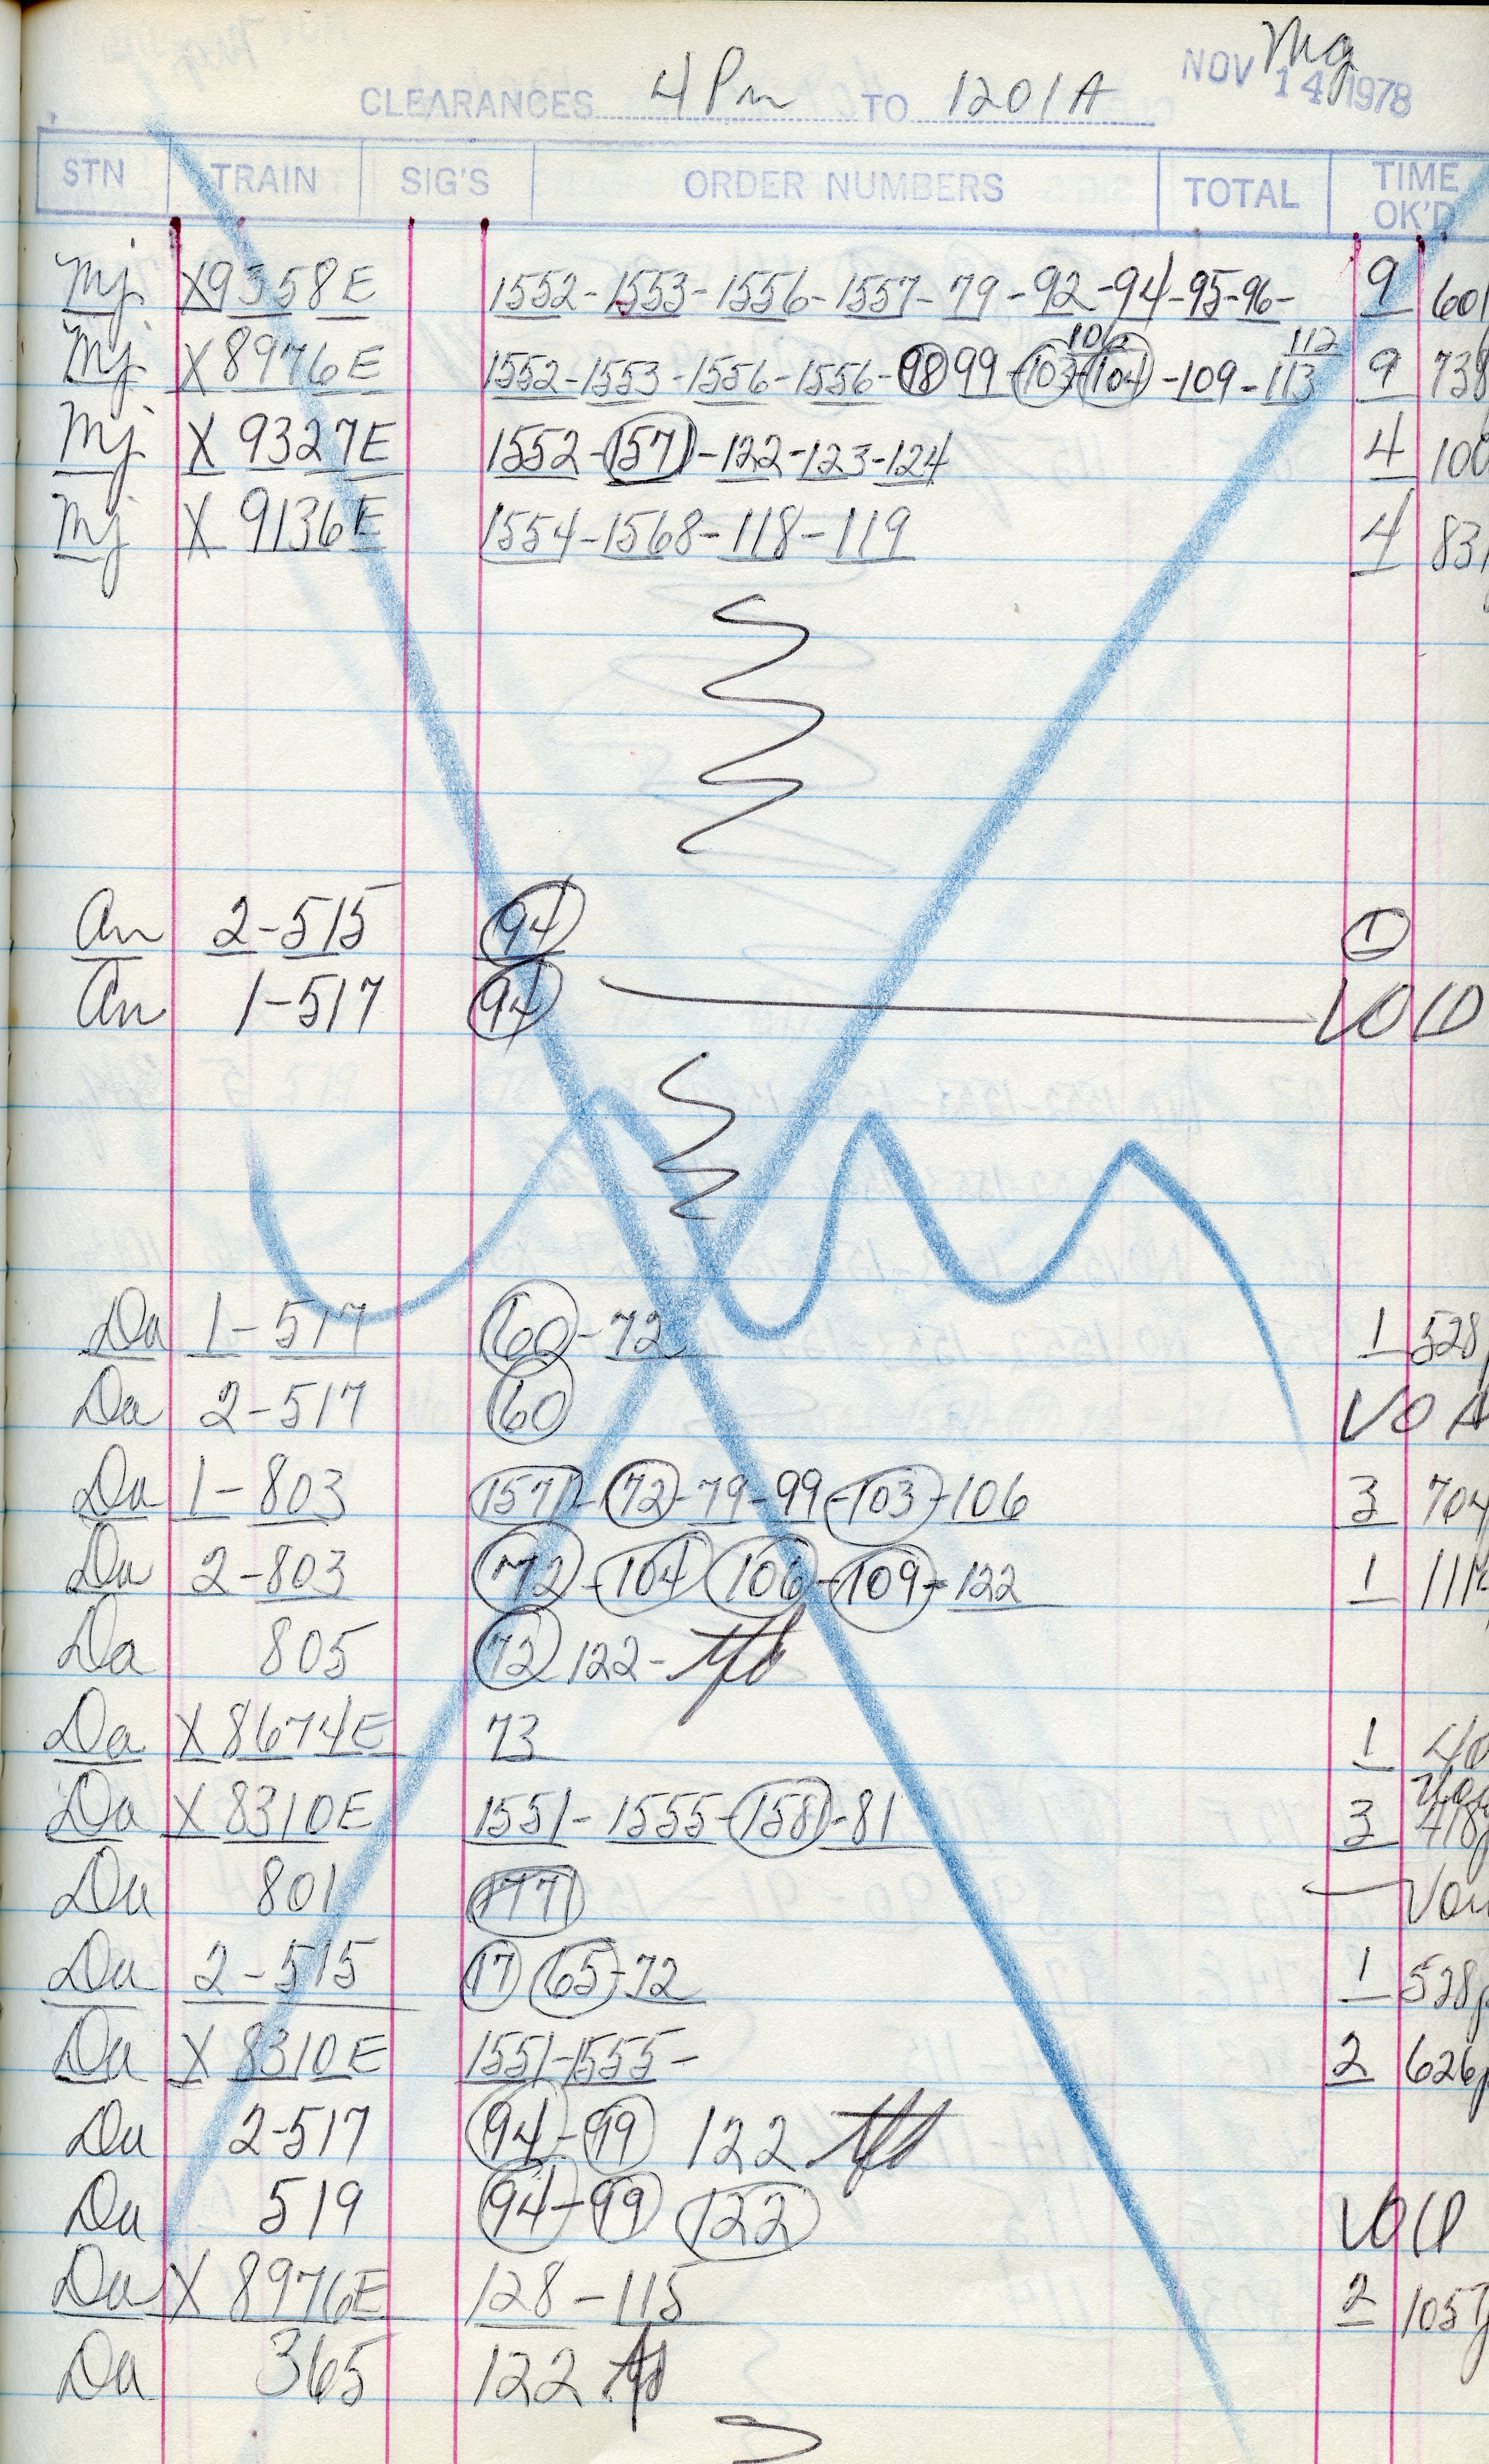 Mg
CLEARANCES 4 Pm TO 1201 A NOV 14 1978
STN TRAIN SIG'S ORDER NUMBERS TOTAL TIME OK'D
Mj X9358E 1552-1553-1556-1557-79-92-94-95-96- 9 601
106 112
Mj X8976E 1552-1553-1556-1556-98 99-103-104-109-113 9 738
Mj X 9327E 1552-1571-122-123-124 4 100
Mj X 9136E 1554-1568-118-119 4 831
An 2-515 94 1
An 1-517 94 VOID
Da 1-517 60-72 1 528
Da 2-517 60 VO
Da 1-803 1571-72-79-99-103-106 3 704
Da 2-803 72-104 106-109-122 1 111
Da 805 72 122-
Da X8674E 73 1 40
Da X8310E 1551-1555-1581-81 3 418p
Da 801 1771 Voi
Da 2-515 17 65-72 1 528p
Da X 8310E 1551-1555- 2 626p
Da 2-517 94-99 122
Da 519 94-99 122 VOID
Da X 8976E 128-115 2 1057
Da 365 122